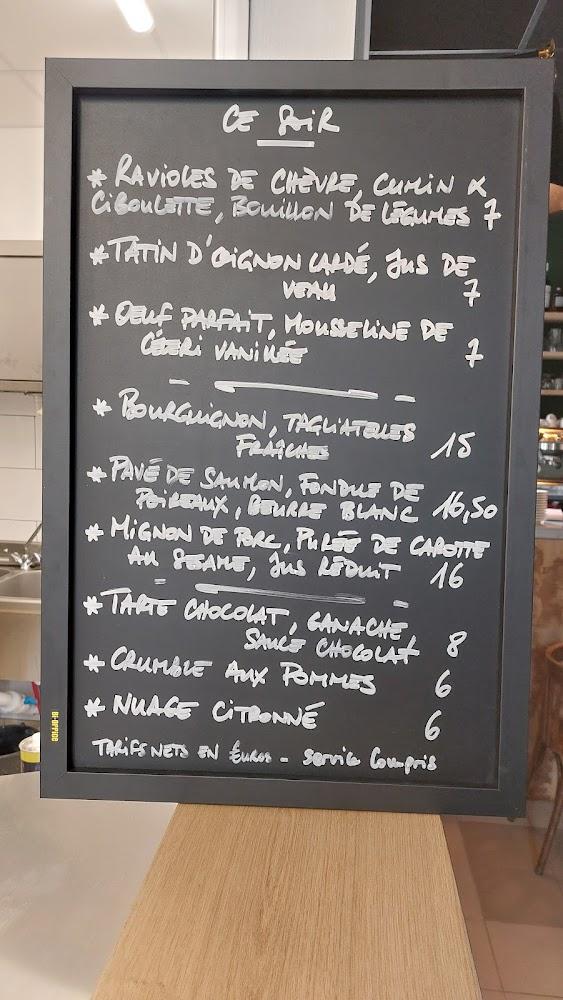 CE SOIR
* RAVIOLES DE CHÈVRE, CUMIN &
CIBOULETTE, BOUILLON DE LÉGUMES 7
* TATIN D'OIGNON LARDÉ, JUS DE
VEAU 7
* OEUF PARFAIT, MOUSSELINE DE
CÉLERI VANILLÉE 7
* BOURGUIGNON, TAGLIATELLES
FRAÎCHES 15
* PAVÉ DE SAUMON, FONDUE DE
POIREAUX, BEURRE BLANC 16,50
* MIGNON DE PORC, PURÉE DE CAROTTE
AU SESAME, JUS RÉDUIT 16
* TARTE CHOCOLAT, GANACHE
SAUCE CHOCOLAT 8
* CRUMBLE AUX POMMES 6
* NUAGE CITRONNÉ 6
TARIFS NETS EN EUROS - Service Compris
BI-OFFICE